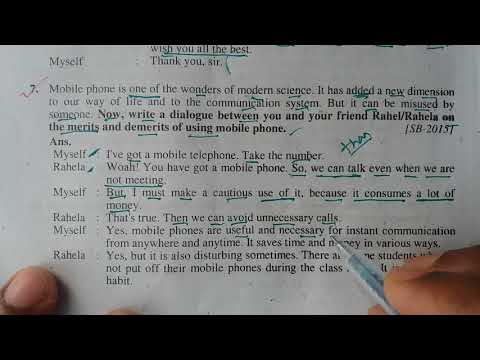 wish you all the best.
Myself : Thank you, sir.
7. Mobile phone is one of the wonders of modern science. It has added a new dimension
to our way of life and to the communication system. But it can be misused by
someone. Now, write a dialogue between you and your friend Rahel/Rahela on
the merits and demerits of using mobile phone. [SB-2015]
than
Ans.
Myself : I've got a mobile telephone. Take the number.
Rahela : Woah! You have got a mobile phone. So, we can talk even when we are
not meeting.
Myself : But, I must make a cautious use of it, because it consumes a lot of
money.
Rahela : That's true. Then we can avoid unnecessary calls.
Myself : Yes, mobile phones are useful and necessary for instant communication
from anywhere and anytime. It saves time and money in various ways.
Rahela : Yes, but it is also disturbing sometimes. There are some students
not put off their mobile phones during the class It
habit.